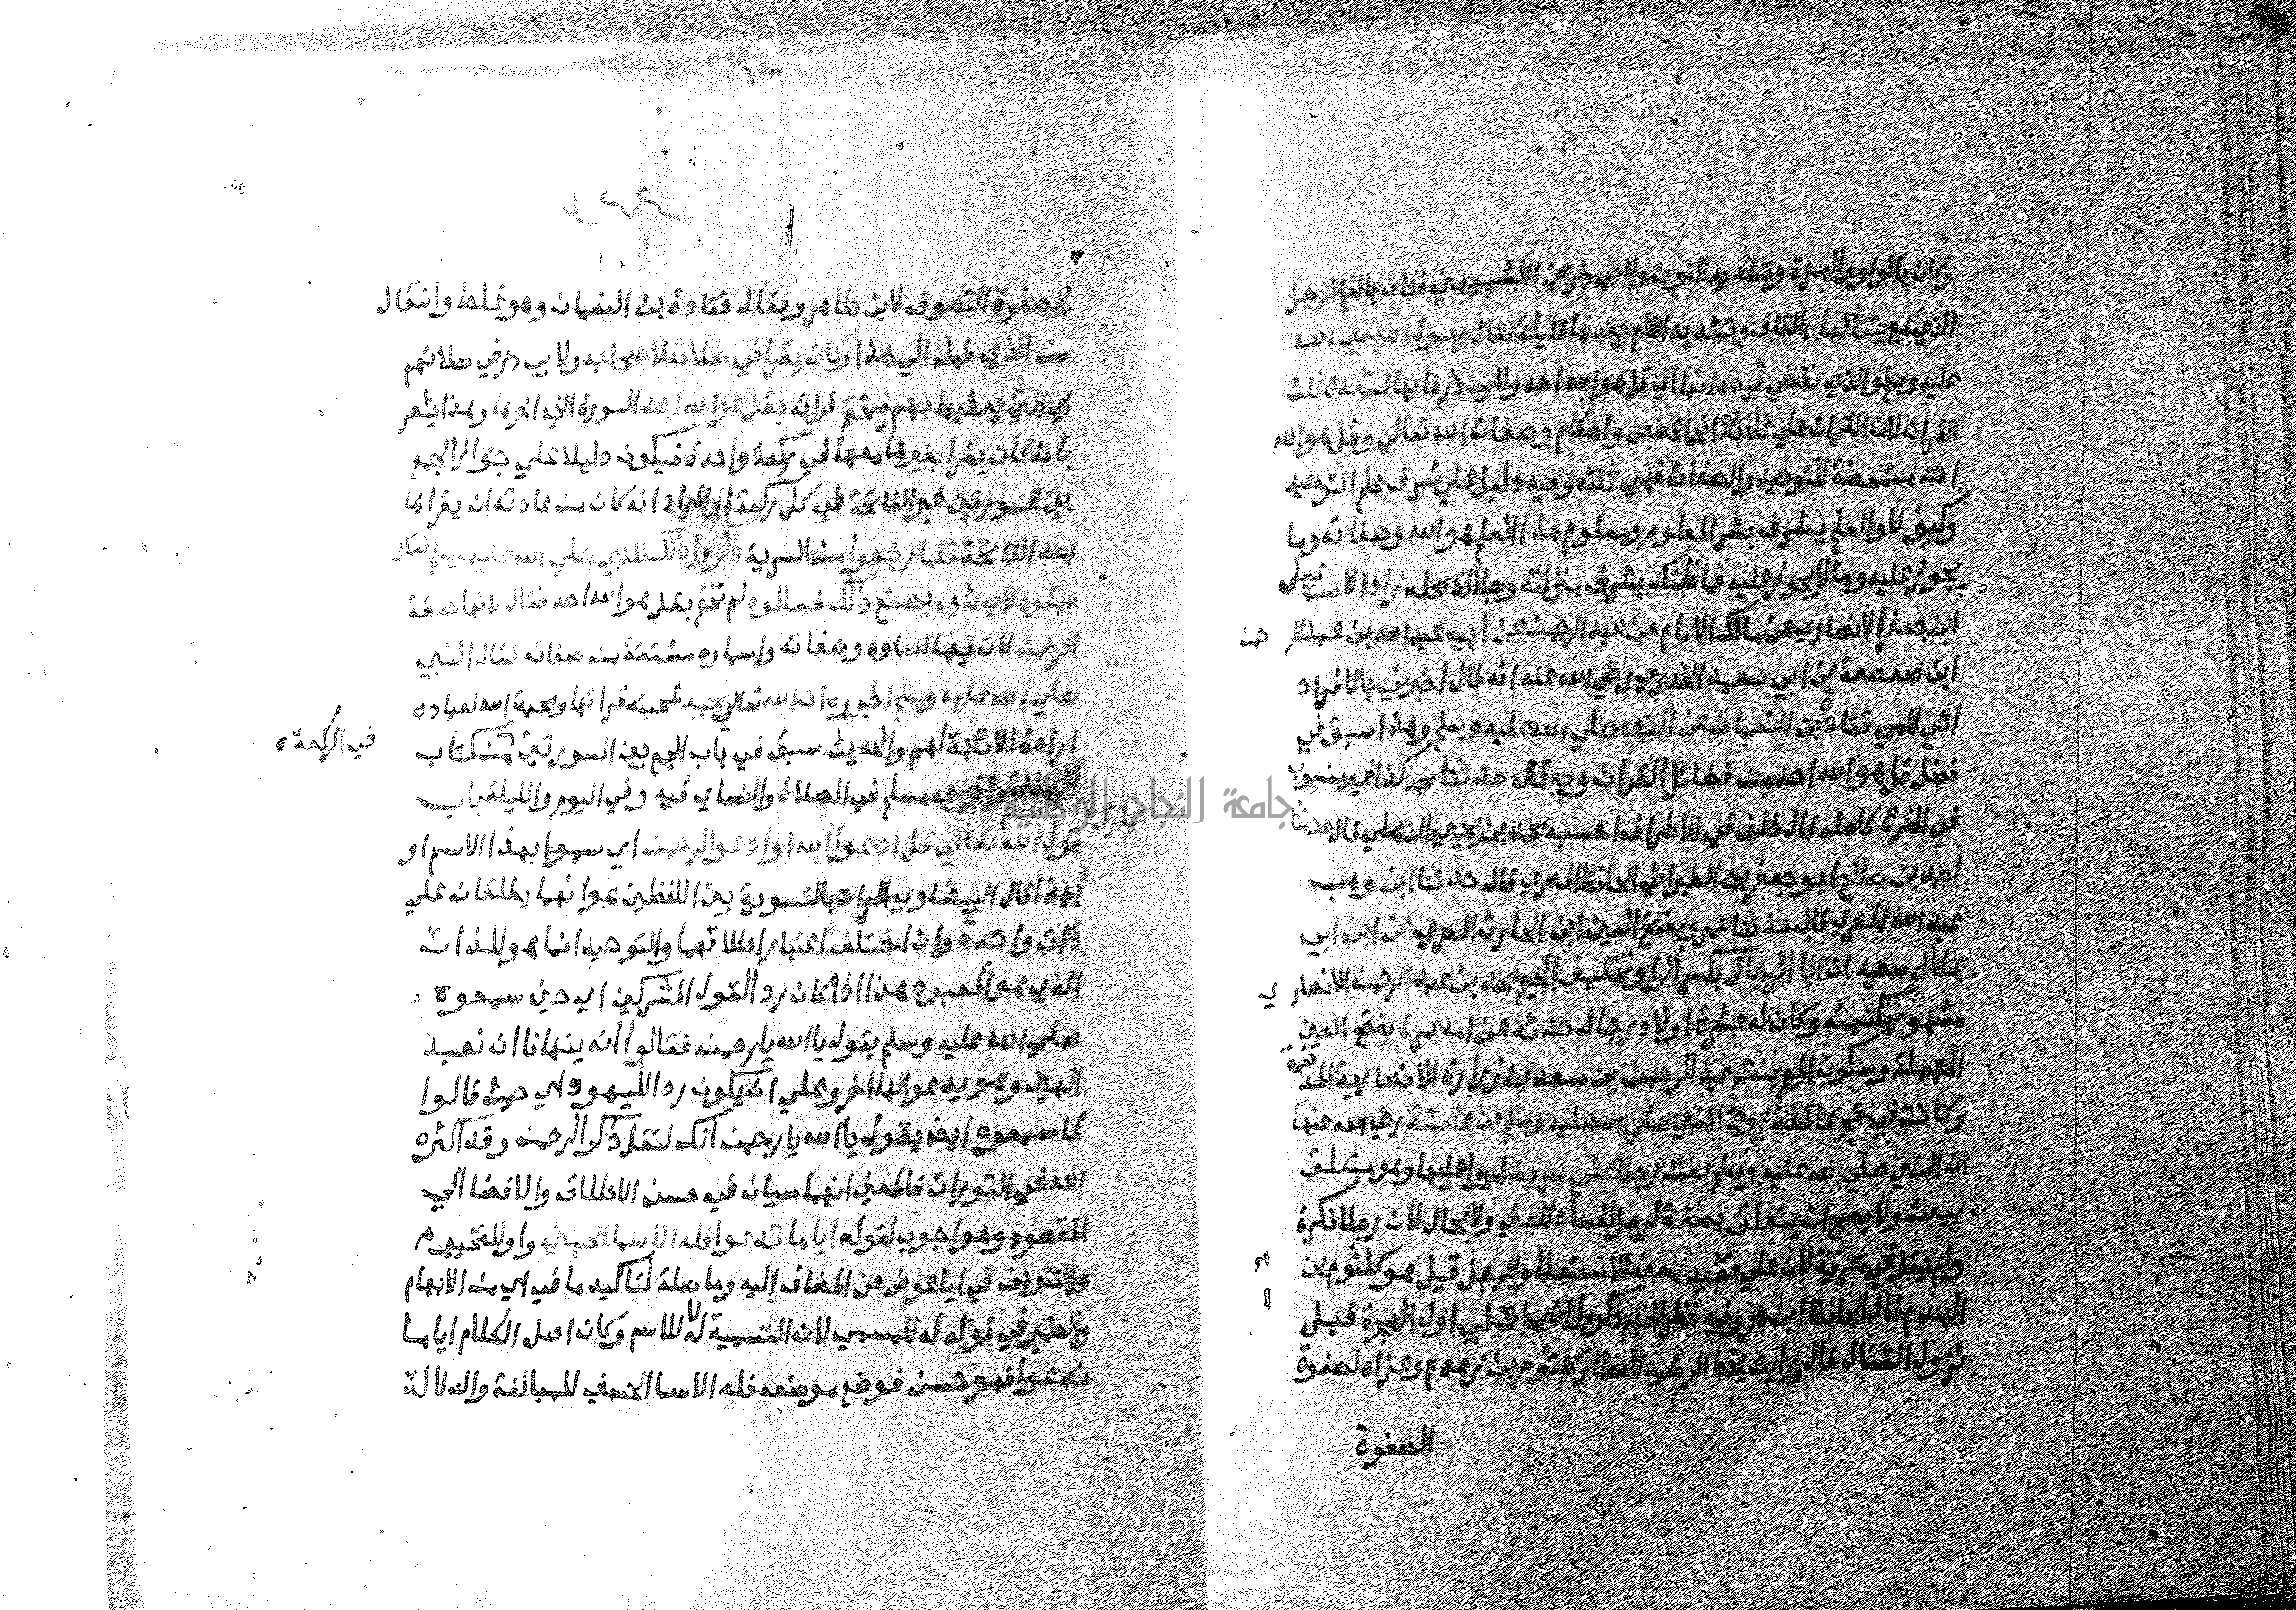 وكان بالواو والهمزة وتشديد النون ولابي ذر عن الكشميهني فكان بالفا الرجل
الذي سمع يتقالها بالقاف وتشديد اللام يعدها قليلة فقال رسول الله صلي الله
عليه وسلم والذي نفسي بيده انها اي قل هو الله احد ولابي ذر فانها لتعدل ثلث
القران لان القران علي ثلاثة انحا قصص واحكام وصفات الله تعالي وقل هو الله
احد متمحضة للتوحيد والصفات فهي ثلثه وفيه دليل علي شرف علم التوحيد
وكيف لا والعلم يشرف بشرف المعلوم ومعلوم هذا العلم هو الله وصفاته وما
يجوز عليه وما لا يجوز عليه فما ظنك بشرف منزلته وجلالة محله زاد اسمعيل
ابن جعفر الانصاري عن مالك الامام عن عبد الرحمن عن ابيه عبد الله بن عبد الرحمن
ابن صعصعة عن ابي سعيد الخدري رضي الله عنه انه قال اخبرني بالافراد
اخي لامي قتادة بن النعمان عن النبي صلي الله عليه وسلم وهذا سبق في
فضل قل هو الله احد من فضائل القران وبه قال حدثنا محمد كذا غير منسوب
في الفرع كاصله قال خلف في الاطراف احسبه محمد بن يحيي الذهلي قال حدثنا
احمد بن صالح ابو جعفر بن الطبراني الحافظ المصري قال حدثنا ابن وهب
عبد الله المصري قال حدثنا عمرو بفتح العين ابن الحارث المصري عن ابن ابي
هلال سعيد ان ابا الرجال بكسر الرا وتخفيف الجيم محمد بن عبد الرحمن الانصاري
مشهور بكنيته وكان له عشرة اولاد رجال حدثه عن امه عمرة بفتح العين
المهملة وسكون الميم بنت عبد الرحمن بن سعد بن زرارة الانصارية المدنية
وكانت في حجر عائشة زوج النبي صلي الله عليه وسلم عن عائشة رضي الله عنها
ان النبي صلي الله عليه وسلم بعث رجلا علي سرية اميرا عليها وهو متعلق
ببعث ولا يصح ان يتعلق بصفة لرجل لفساد المعني ولا بحال لان رجلا نكرة
ولم يقل في سرية لان علي تفيد معني الاستعلا والرجل قيل هو كلثوم بن
الهدم قال الحافظ ابن حجر وفيه نظر لانهم ذكروا انه مات في اول الهجرة قبل
نزول القتال قال ورايت بخط الرشيد العطار كلثوم بن زهدم وعزاه لصفوة
الصفوة
الصفوة التصوف لابن طاهر ويقال قتادة بن النعمان وهو غلط وانتقال
من الذي قبله الي هذا وكان يقرا في صلاته لاصحابه ولابي ذر في صلاتهم
اي التي يصليها بهم فيختم قراته بقل هو الله احد السورة الي اخرها وهذا يشعر
بانه كان يقرا بغيرها معها في ركعة واحدة فيكون دليلا علي جواز الجمع
بين السورتين غير الفاتحة في كل ركعة او المراد انه كان من عادته ان يقراها
بعد الفاتحة فلما رجعوا من السرية ذكروا ذلك للنبي صلي الله عليه وسلم فقال
سلوه لاي شي يصنع ذلك فسالوه لم تختم بقل هو الله احد فقال لانها صفة
الرحمن لان فيها اسماوه وصفاته واسماوه مشتقة من صفاته فقال النبي
صلي الله عليه وسلم اخبروه ان الله تعالي يحبه لمحبته قراتها ومحبة الله لعباده
ارادة الاثابة لهم والحديث سبق في باب الجمع بين السورتين من كتاب
في الركعة
الصلاة واخرجه مسلم في الصلاة والنساي فيه وفي اليوم والليلة باب
قول الله تعالي قل ادعوا الله او ادعوا الرحمن اي سموا بهذا الاسم او
بهذا قال البيضاوي المراد بالتسوية بين اللفظين هو انهما يطلقان علي
ذات واحدة وان اختلف اعتبار اطلاقهما والتوحيد انما هو للذات
الذي هو المعبود هذا اذا كان رد القول المشركين اي حين سمعوه
صلي الله عليه وسلم يقول يا الله يا رحمن فقالوا انه ينهانا ان نعبد
الهين وهو يدعو الها اخر وعلي ان يكون رد لليهود اي حيث قالوا
لما سمعوه ايضا يقول يا الله يا رحمن انك لتقل ذكر الرحمن وقد اكثره
الله في التورات فالمعني انهما سيان في حسن الاطلاق والافضا الي
المقصود وهو اجوب لقوله ايا ما تدعوا فله الاسما الحسني واو للتخيير
والتنوين في ايا عوض عن المضاف اليه وما صلة لتاكيد ما في اي من الابهام
والضمير في قوله له للمسمي لان التسمية له لا للاسم وكان اصل الكلام ايا ما
تدعوا فهو حسن فوضع موضعه فله الاسما الحسني للمبالغة والدلالة
جامعة النجاح الوطنية